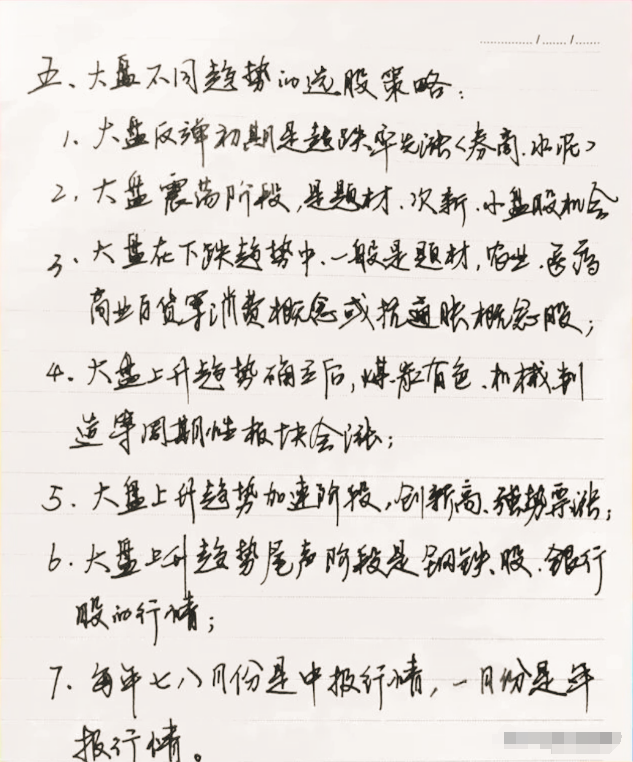 五、大盘不同趋势的选股策略:
1、大盘反弹初期是超跌率先涨(券商、水泥)
2、大盘震荡阶段,是题材、次新、小盘股机会
3、大盘在下跌趋势中、一般是题材,农业、医药
商业百货军消费概念或抗通胀概念股;
4、大盘上升趋势确立后,煤炭有色、机械制
造等周期性板块会涨;
5、大盘上升趋势加速阶段,创新高、强势票涨;
6、大盘上升趋势尾声阶段是钢铁股、銀行
股的行情;
7、每年七八月份是中报行情,一月份是年
报行情。